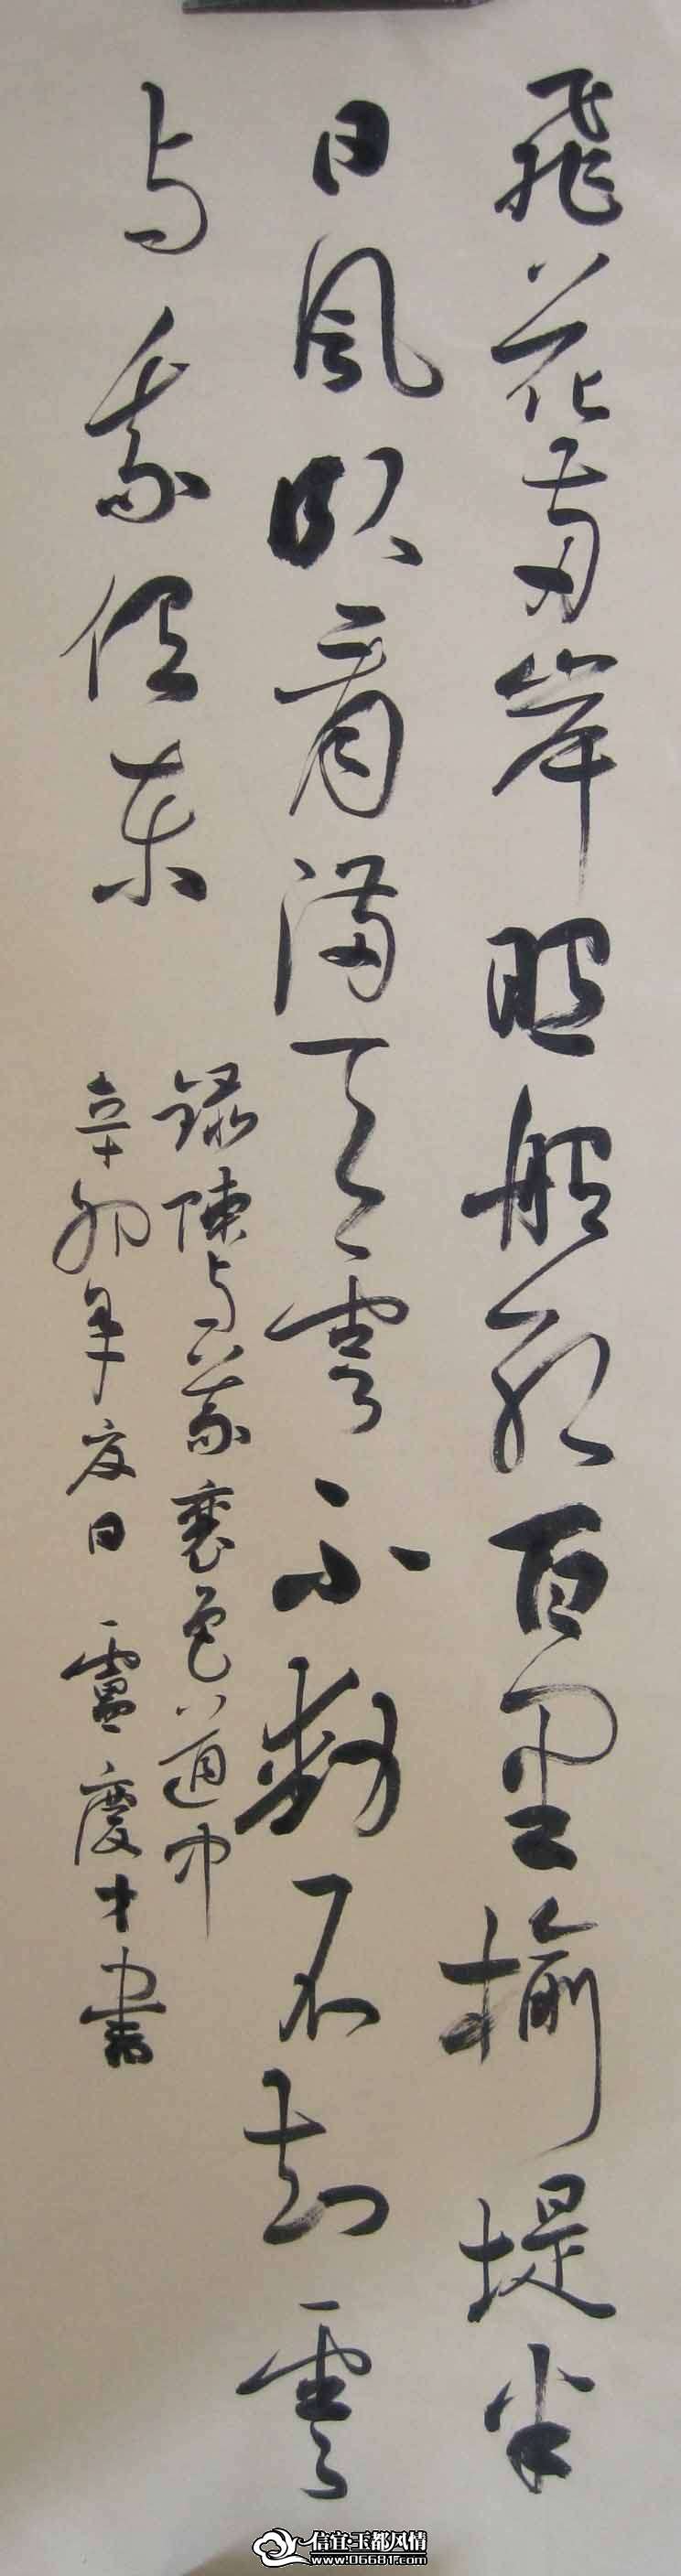 飛花两岸照船紅百里榆堤半
日風卧看滿天雲不動不知雲
与我俱東
錄陳与義襄邑道中
辛卯年夏日 盧慶才書
信宜·玉都风情
www.06681.com